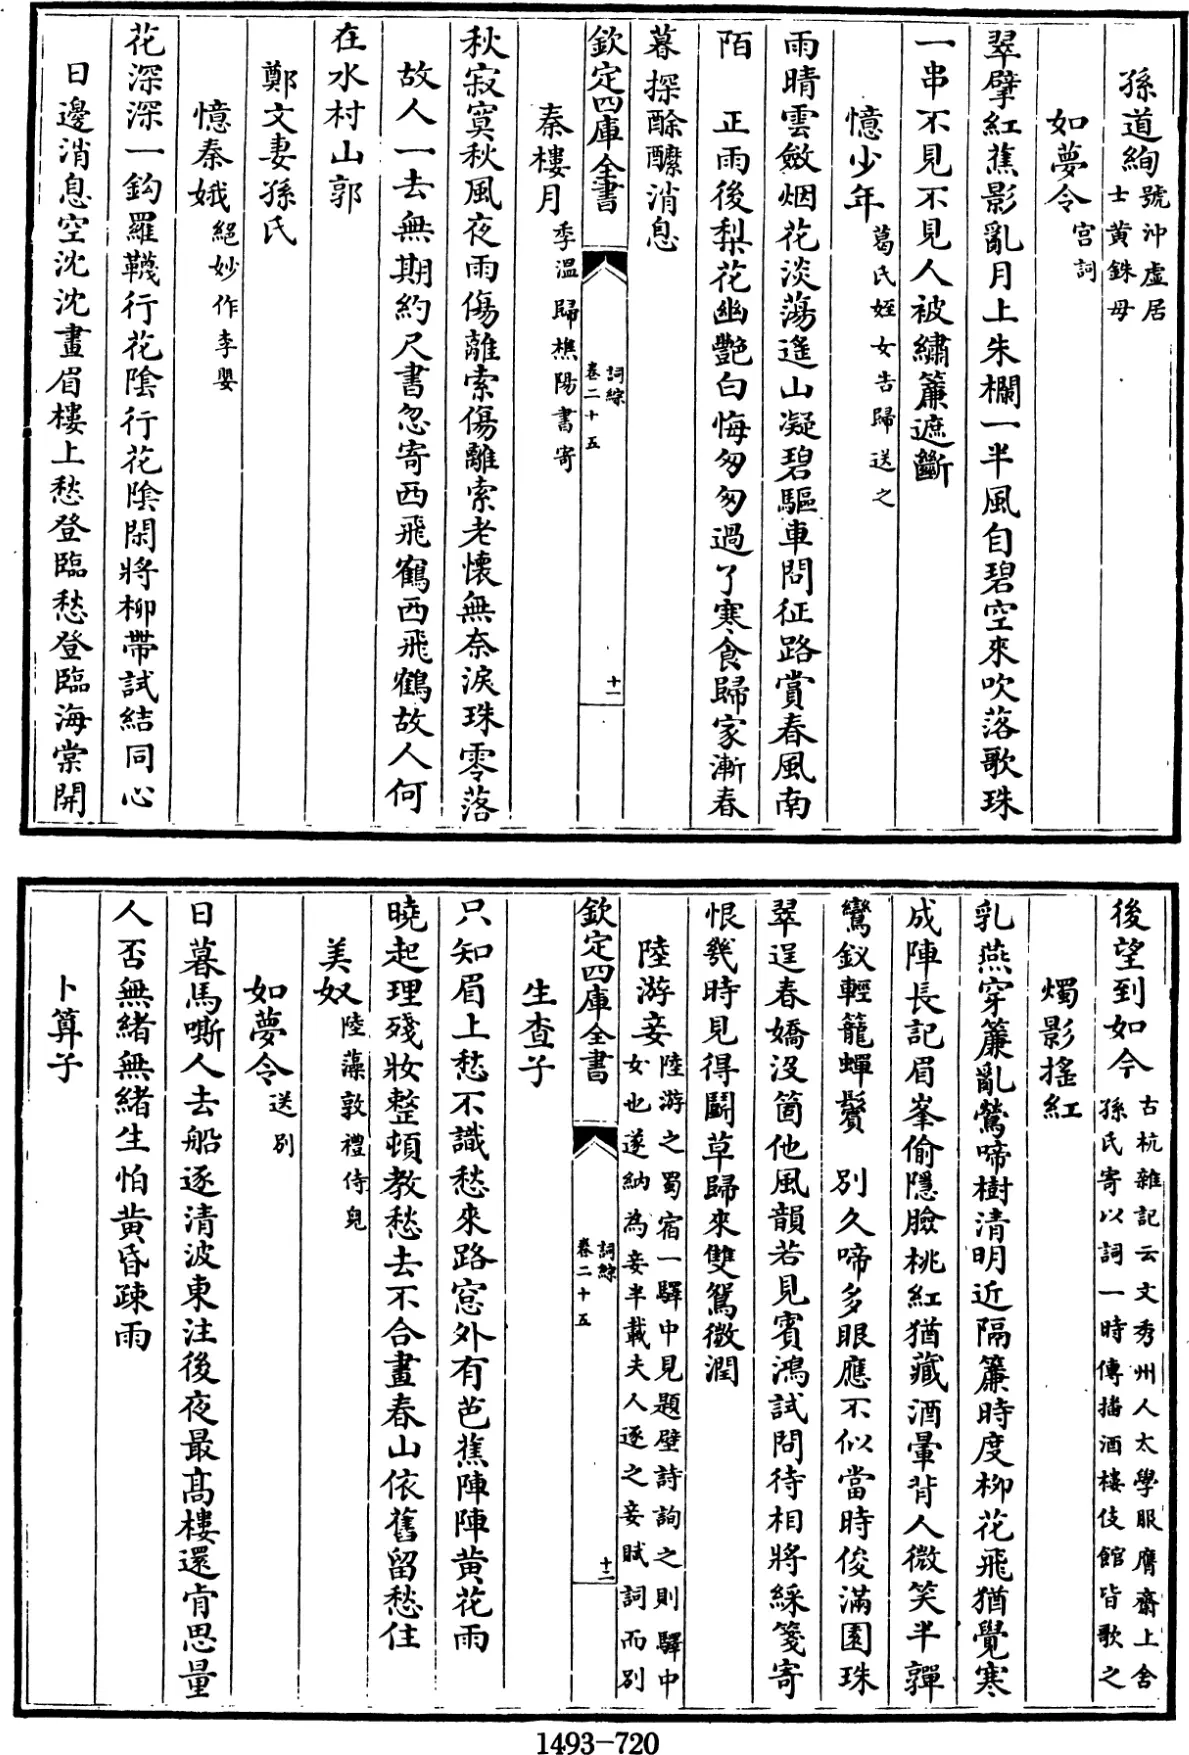 孫道絢號沖虛居士黄銖母
如夢令宫詞
翠擘紅蕉影亂月上朱欄一半風自碧空來吹落歌珠
一串不見不見人被繡簾遮斷
憶少年葛氏姪女告歸送之
雨晴雲斂烟花淡蕩遥山凝碧驅車問征路賞春風南
陌　正雨後梨花幽艷白悔匆匆過了寒食歸家漸春
暮探酴醿消息
欽定四庫全書　詞綜卷二十五　十一
秦樓月季温歸樵陽書寄
秋寂寞秋風夜雨傷離索傷離索老懷無奈淚珠零落
故人一去無期約尺書忽寄西飛鶴西飛鶴故人何
在水村山郭
鄭文妻孫氏
憶秦娥絕妙作李嬰
花深深一鈎羅韈行花陰行花陰閑將柳帶試結同心
日邊消息空沈沈畫眉樓上愁登臨愁登臨海棠開
後望到如今古杭雜記云文秀州人太學服膺齋上舍孫氏寄以詞一時傳播酒樓伎館皆歌之
燭影搖紅
乳燕穿簾亂鶯啼樹清明近隔簾時度柳花飛猶覺寒
成陣長記眉峯偷隱臉桃紅猶藏酒暈背人微笑半嚲
鸞釵輕籠蟬鬢　别久啼多眼應不似當時俊滿園珠
翠逞春嬌没箇他風韻若見賓鴻試問待相將綵箋寄
恨幾時見得鬭草歸來雙鴛微潤
陸游妾陸游之蜀宿一驛中見題壁詩詢之則驛中女也遂納為妾半載夫人逐之妾賦詞而别
欽定四庫全書　詞綜卷二十五　十二
生查子
只知眉上愁不識愁來路窓外有芭蕉陣陣黄花雨
曉起理殘妝整頓教愁去不合畫春山依舊留愁住
美奴陸藻敦禮侍皃
如夢令送别
日暮馬嘶人去船逐清波東注後夜最髙樓還肯思量
人否無緒無緒生怕黄昏疎雨
卜算子
1493-720